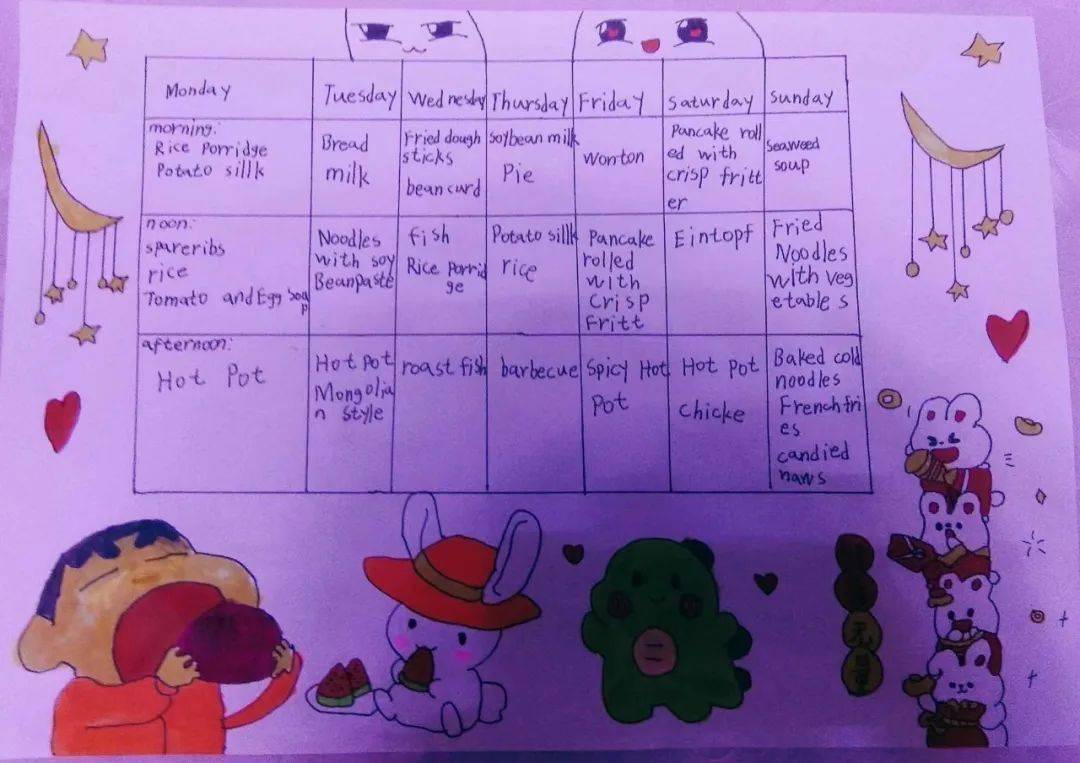 Monday
Tuesday
Wednesday
Thursday
Friday
Saturday
Sunday
morning:
Rice Porridge
Potato sillk
Bread
milk
Fried dough
sticks
beancurd
soybean milk
Pie
wonton
Pancake roll
ed with
crisp fritt
er
seaweed
soup
noon:
spareribs
rice
Tomato and Egg soa
p
Noodles
with soy
Beanpaste
fish
Rice Porrid
ge
Potato sillk
rice
Pancake
rolled
with
Crisp
Fritt
Eintopf
Fried
Noodles
with veg
etables
afternoon:
Hot Pot
Hot pot
Mongolia
n style
roast fish
barbecue
Spicy Hot
Pot
Hot Pot
chicke
Baked cold
noodles
French fri
es
candied
haws
二